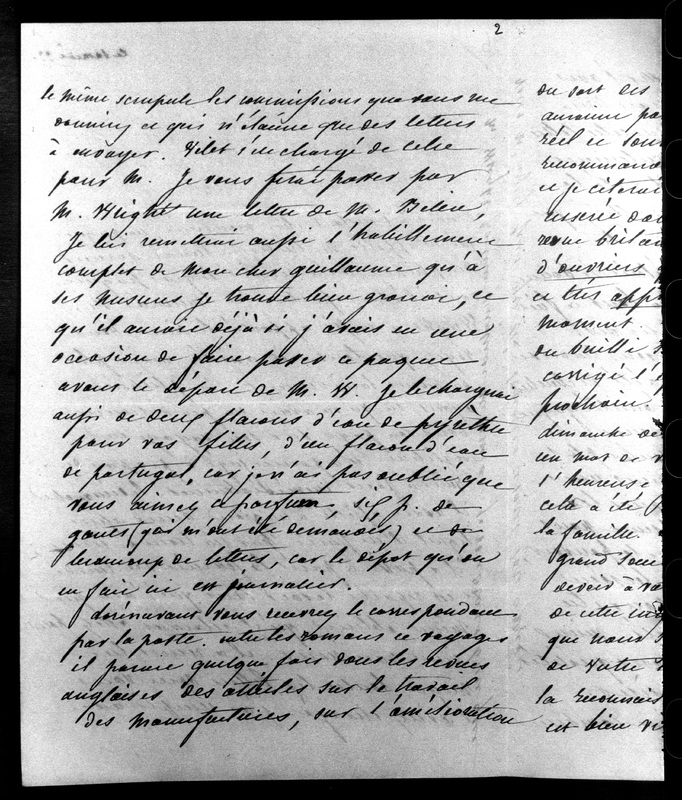 2
le même scrupule les commissions que vous me
donniez ce qui n'étaient que des lettres
à envoyer. s'est chargé de celle
pour M. Je vous ferai passer par
M. Wright une lettre de M.
Je lui remettrai aussi l'habillement
complet de mon cher guillaume qu'à
ses mesures je trouve bien grandi, ce
qu'il aurait déjà si j'avais eu une
occasion de faire passer ce paquet
avant le départ de M. W. Je le chargerai
aussi de deux flacons d'eau de pyrèthre
pour vos filles, d'un flacon d'eau
de portugal, car je n'ai pas oublié que
vous aimez ce parfum, six p. de
gants (qui m'ont été demandés) et de
beaucoup de lettres, car le dépôt qu'on
en fait ici est journalier.
dorénavant vous recevrez le correspondant
par la poste. entre les romans et voyages
il parait quelque fois dans les revues
anglaises des articles sur le travail
des manufactures, sur l'amélioration
du sort des
réel et
recommand
et je citerai
insérée dans
revue britan
d'ouvriers
et très app
moment.
ou
corrigé l'
prochain.
dimanche de
un mot de
l'heureuse
cela a été
la famille.
grand
devoir à
de cette
que nous
de votre
la reconnais
est bien